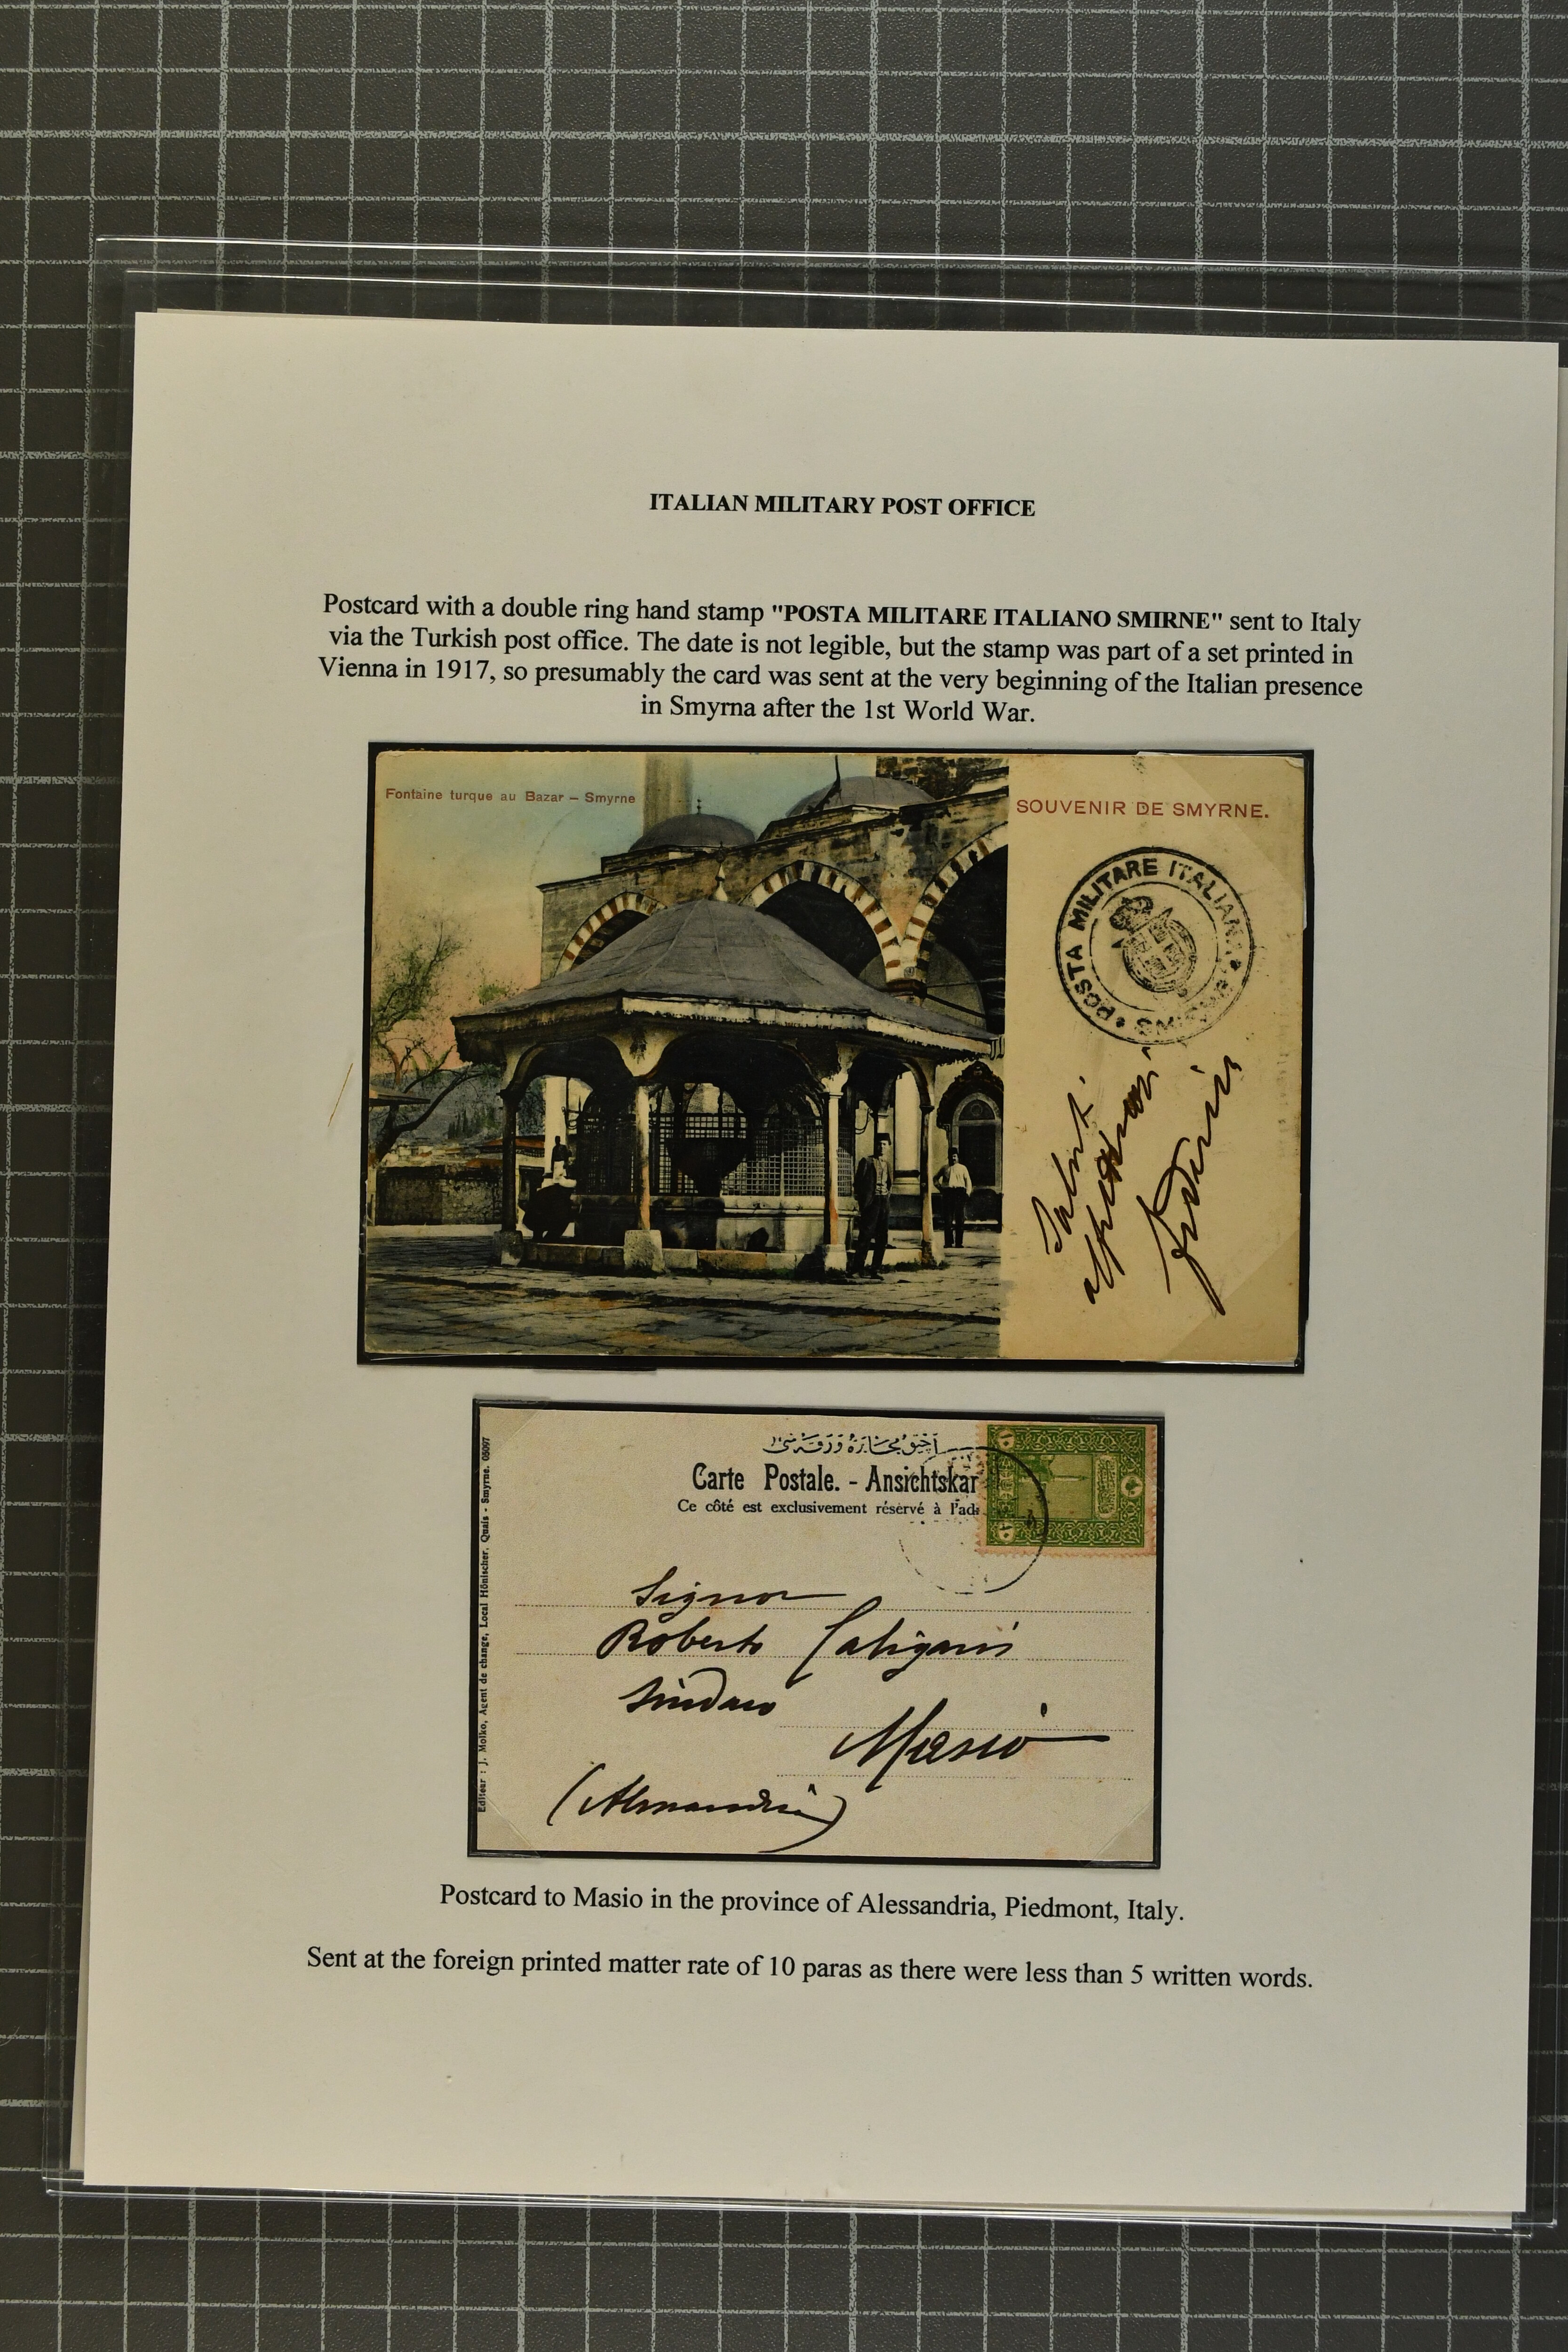 ITALIAN MILITARY POST OFFICE
Postcard with a double ring hand stamp "POSTA MILITARE ITALIANO SMIRNE" sent to Italy
via the Turkish post office. The date is not legible, but the stamp was part of a set printed in
Vienna in 1917, so presumably the card was sent at the very beginning of the Italian presence
in Smyrna after the 1st World War.
Fontaine turque au Bazar – Smyrne
SOUVENIR DE SMYRNE.
POSTA MILITARE ITALIANA
Saluti
Carte Postale. - Ansichtskar
Ce côté est exclusivement réservé à l'adr
Editeur : J. Molko, Agent de change, Local Hönischer, Quais - Smyrne. 05097
Signor
Roberto
Sindaco
Masio
(Alessandria)
Postcard to Masio in the province of Alessandria, Piedmont, Italy.
Sent at the foreign printed matter rate of 10 paras as there were less than 5 written words.